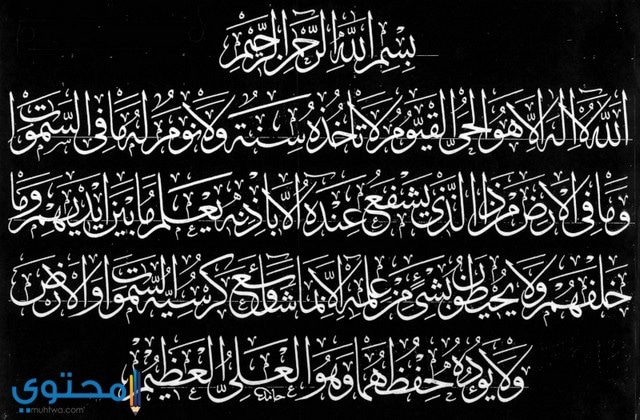 بِسْمِ اللَّهِ الرَّحْمَنِ الرَّحِيمِ
اللَّهُ لَا إِلَهَ إِلَّا هُوَ الْحَيُّ الْقَيُّومُ لَا تَأْخُذُهُ سِنَةٌ وَلَا نَوْمٌ لَهُ مَا فِي السَّمَوَاتِ
وَمَا فِي الْأَرْضِ مَنْ ذَا الَّذِي يَشْفَعُ عِنْدَهُ إِلَّا بِإِذْنِهِ يَعْلَمُ مَا بَيْنَ أَيْدِيهِمْ وَمَا
خَلْفَهُمْ وَلَا يُحِيطُونَ بِشَيْءٍ مِنْ عِلْمِهِ إِلَّا بِمَا شَاءَ وَسِعَ كُرْسِيُّهُ السَّمَوَاتِ وَالْأَرْضَ
وَلَا يَؤُدُهُ حِفْظُهُمَا وَهُوَ الْعَلِيُّ الْعَظِيمُ
محتوي
muhtwa.com